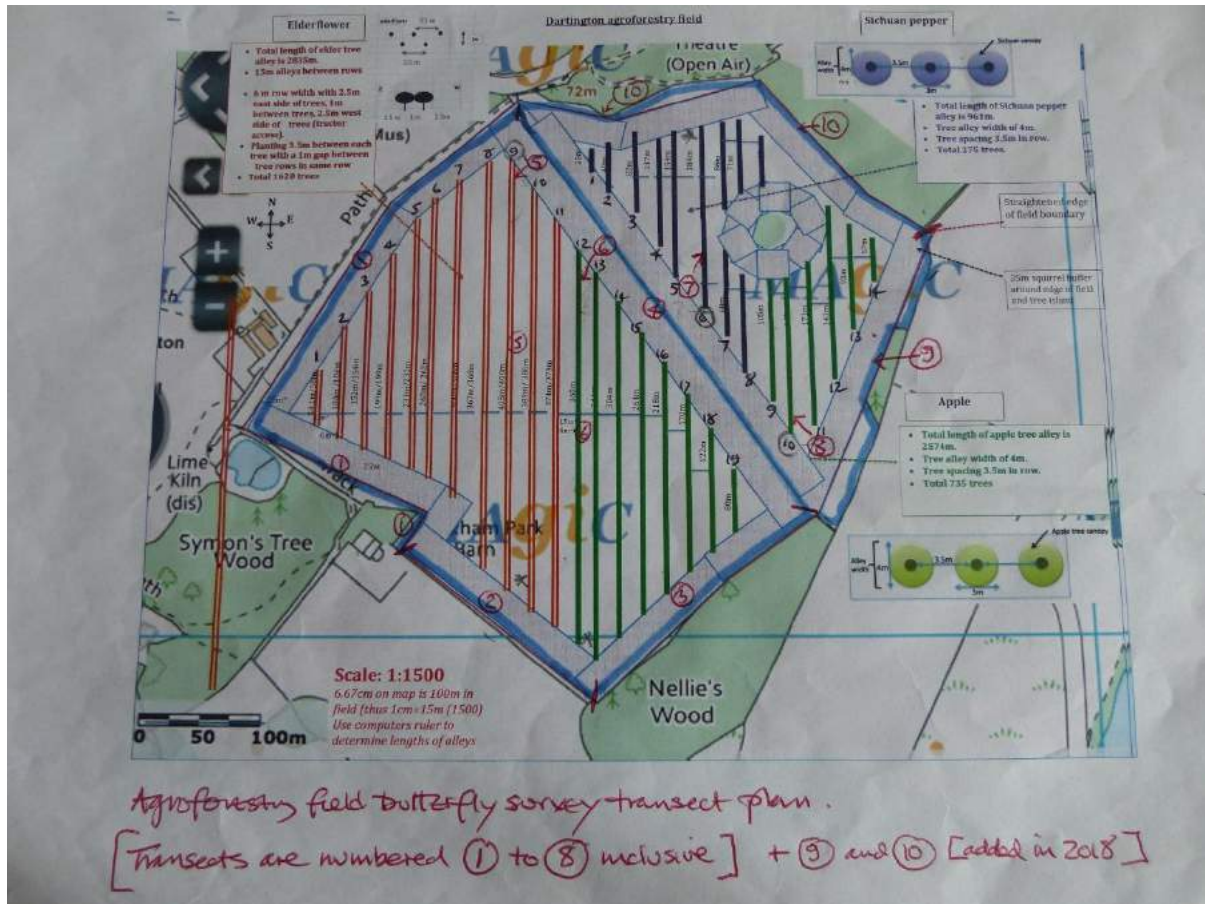 Dartington agroforestry field
Elderflower
• Total length of elder tree
alley is 2835m.
• 15m alleys between rows
• 6 m row width with 2.5m
east side of trees, 1m
between trees, 2.5m west
side of trees (tractor
access).
• Planting 3.5m between each
tree with a 1m gap between
Tree rows in same row
• Total 1620 trees
Sichuan pepper
Alley
width
3.5m
• Total length of Sichuan pepper
alley is 961m.
• Tree alley width of 4m.
• Tree spacing 3.5m in row.
• Total 275 trees.
Theatre
(Open Air)
72m
10
10
Mus)
Path
N
W E
S
MAGiC
Straightened edge
of field boundary
25m squirrel buffer
around edge of field
and tree island
Apple
• Total length of apple tree alley is
2874m.
• Tree alley width of 4m.
• Tree spacing 3.5m in row.
• Total 735 trees
Apple tree canopy
Alley
width
4m
3.5m
3m
1 2 3 4 5 6 7 8 9 10 11 12 13 14 15 16 17 18 19
1 2 3 4 5 6 7 8 9 10 11 12 13 14
ton
Lime
Kiln
(dis)
Track
Symon's Tree
Wood
ham Park
Barn
Nellie's
Wood
Scale: 1:1500
6.67cm on map is 100m in
field (thus 1cm=15m (1500)
Use computers ruler to
determine lengths of alleys
0 50 100m
Agroforestry field butterfly survey transect plan.
[Transects are numbered ① to ⑧ inclusive] + ⑨ and ⑩ [added in 2018]